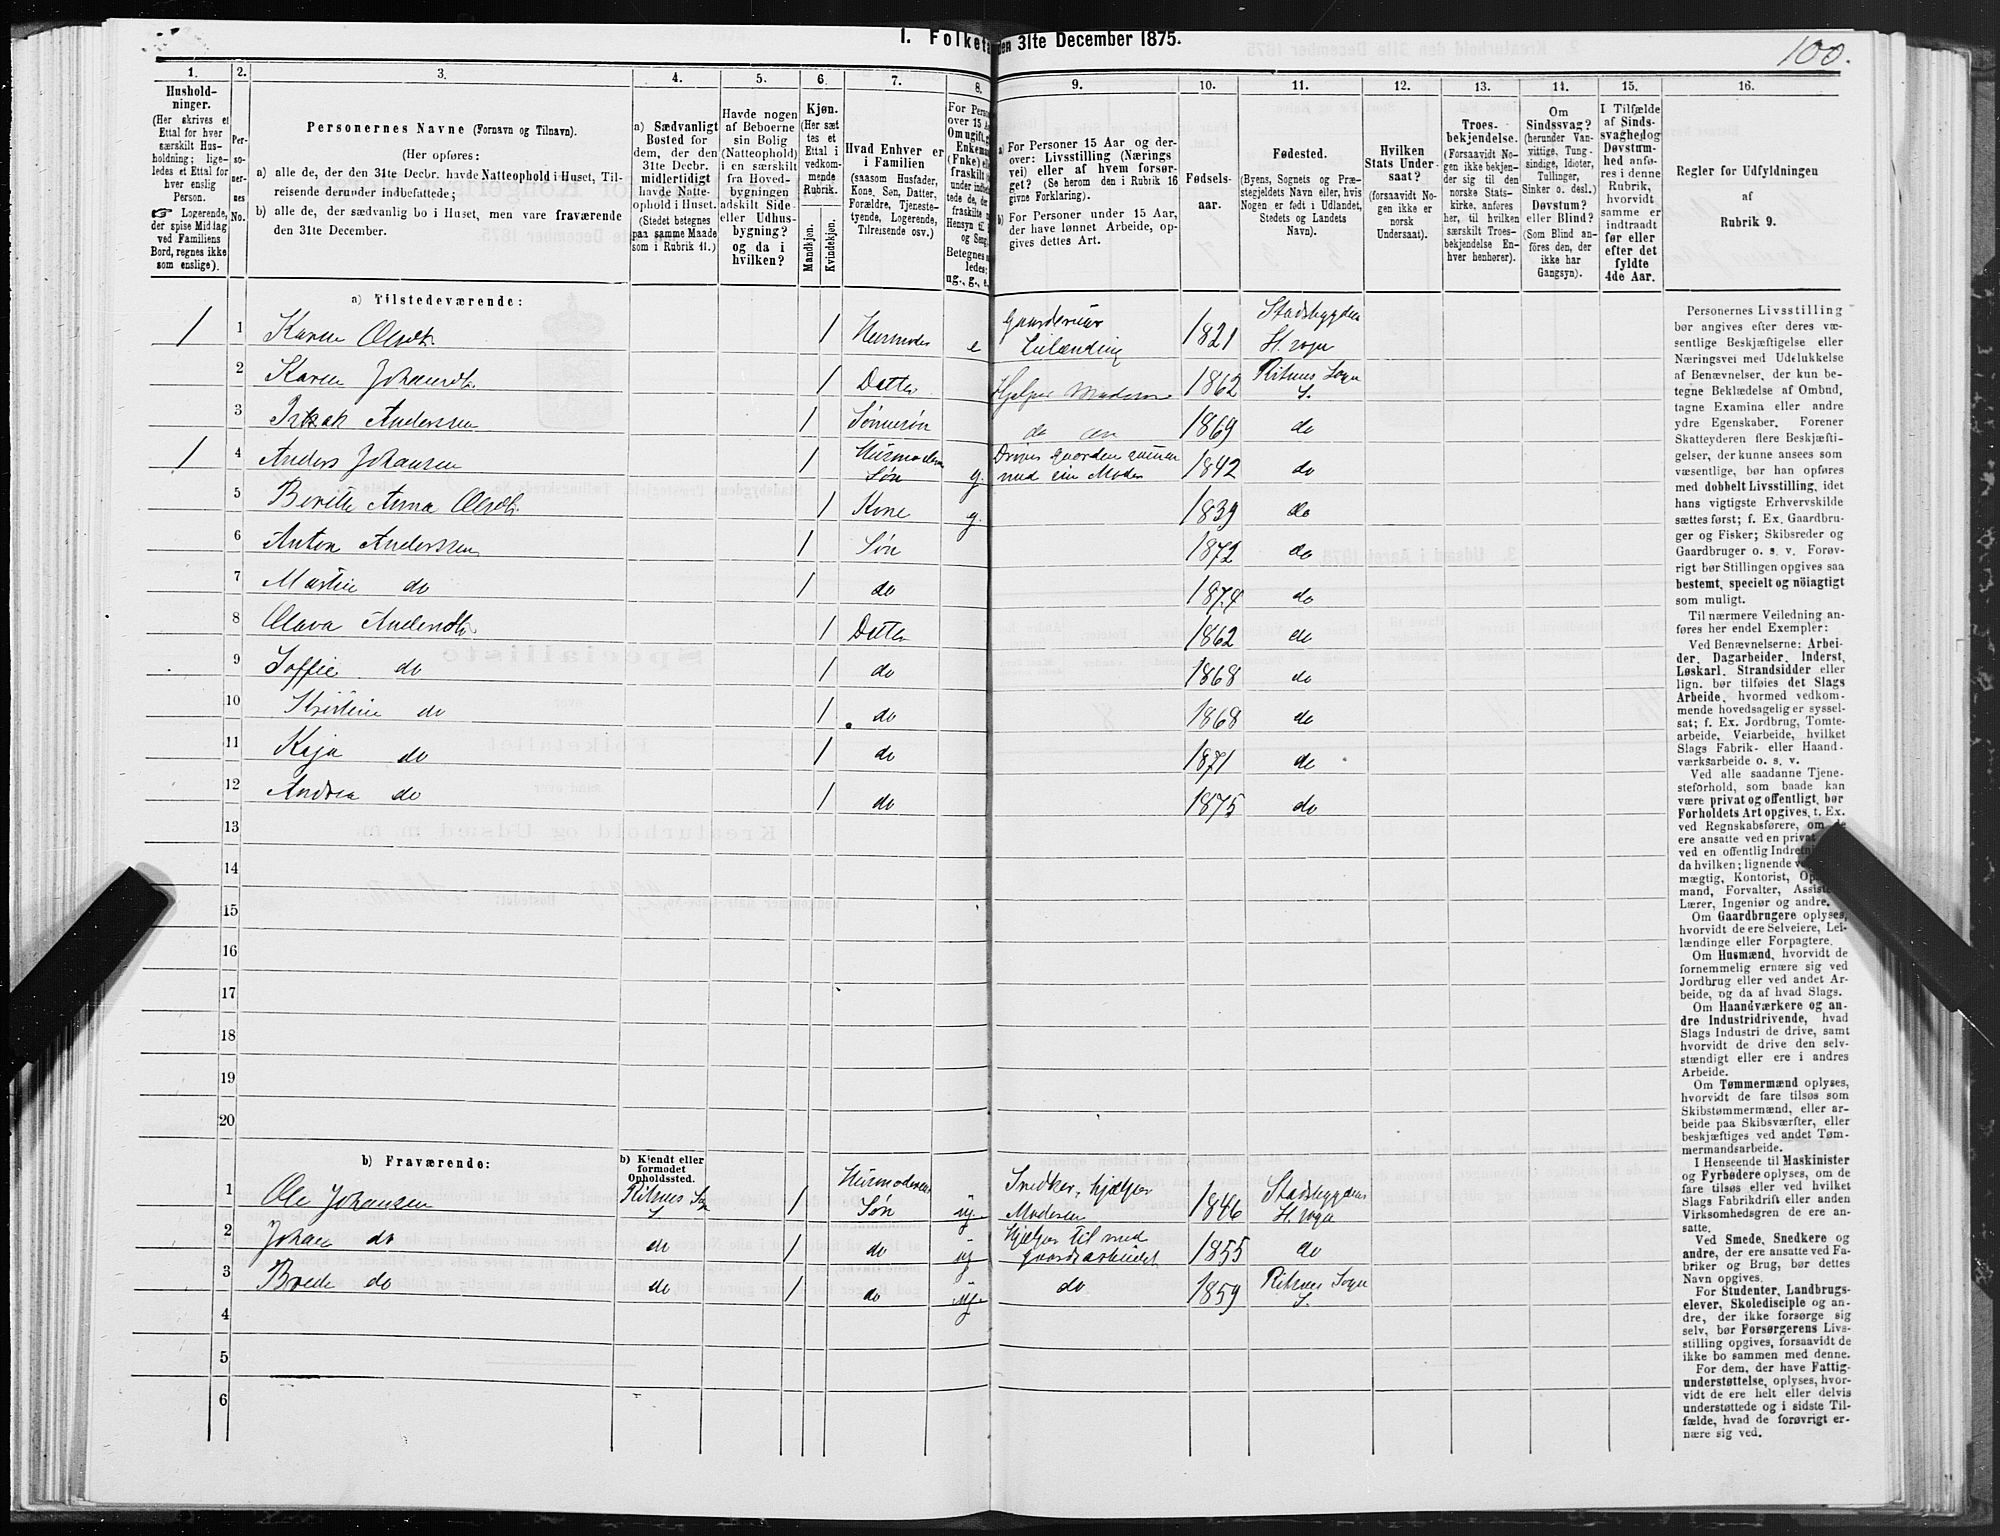 I. Folketa den 31te December 1875.
100.
1. 2. 3. 4. 5. 6. 7. 8. 9. 10. 11. 12. 13. 14. 15. 16.
Hushold-
ninger.
(Her skrives et
Ettal for hver
særskilt Hus-
holdning; lige-
ledes et Ettal for
hver enslig
Person.
☞ Logerende,
der spise Middag
ved Familiens
Bord, regnes ikke
som enslige).
Per-
so-
ner-
nes
No.
Personernes Navne (Fornavn og Tilnavn).
(Her opføres:
a) alle de, der den 31te Decbr. havde Natteophold i Huset, Til-
reisende derunder indbefattede;
b) alle de, der sædvanlig bo i Huset, men vare fraværende
den 31te December.
a) Sædvanligt
Bosted for
dem, der den
31te Decbr.
midlertidigt
havde Natte-
ophold i Huset.
(Stedet betegnes
paa samme Maade
som i Rubrik 11.)
Havde nogen
af Beboerne
sin Bolig
(Natteophold)
i en særskilt
fra Hoved-
bygningen
adskilt Side-
eller Udhus-
bygning?
og da i
hvilken?
Kjøn.
(Her sæt
tes et
Ettal i
vedkom-
mende
Rubrik.
Mandkjøn.
Kvindekjøn.
Hvad Enhver er
i Familien
(saasom Husfader,
Kone, Søn, Datter,
Forældre, Tjeneste-
tyende, Logerende,
Tilreisende osv.)
For Perso
over 15 Aa
Om ugift, g
Enkema
(Fnke) ell
fraskilt
under indbe
tede de, d
fraskilte
Hensyn til
og Seng.
Betegnes s
ledes:
ug., g., e.
a) For Personer 15 Aar og der-
over: Livsstilling (Nærings
vei) eller af hvem forsør-
get? (Se herom den i Rubrik 16
givne Forklaring).
b) For Personer under 15 Aar,
der have lønnet Arbeide, op-
gives dettes Art.
Fødsels-
aar.
Fødested.
(Byens, Sognets og Præ-
stegjeldets Navn eller, hvis
Nogen er født i Udlandet,
Stedets og Landets
Navn).
Hvilken
Stats Under-
saat?
(forsaavidt No-
gen ikke er
norsk
Undersaat).
Troes-
bekjendelse.
(Forsaavidt No-
gen ikke bekjen-
der sig til den
norske Stats-
kirke, anføres
her, til hvilken
særskilt Troes-
bekjendelse En-
hver henhører).
Om
Sindssvag?
(herunder Van-
vittige, Tung-
sindige, Idioter,
Tullinger,
Sinker o. desl.)
Døvstum?
eller Blind?
(Som Blind an-
føres den, der
ikke har
Gangsyn).
I Tilfælde
af Sinds-
svaghed og
Døvstum-
hed anfø-
res i denne
Rubrik,
hvorvidt
samme er
indtraadt
før eller
efter det
fyldte
4de Aar.
Regler for Udfyldningen
af
Rubrik 9.
a) Tilstedeværende:
1 1 Karen Olsdtr 1 Husmoder e Gaardbruger Leilænding 1821 Stadsbygden H. sogn
2 Karen Johansdtr 1 Datter Hjelper Moderen 1862 Ritsens Sogn S.
3 Isak Anderssen 1 Sønnesøn do 1869 do
1 4 Anders Johansen 1 Husmoderens Søn g. Driver Gaarden sammen med sin Moder 1842 do
5 Berith Anna Olsdtr 1 Kone g. 1839 do
6 Anton Anderssen 1 Søn 1872 do
7 Martin do 1 do 1874 do
8 Olava Andersdtr 1 Datter 1862 do
9 Soffie do 1 do 1868 do
10 Kristine do 1 do 1868 do
11 Kaja do 1 do 1871 do
12 Andrea do 1 do 1875 do
13
14
15
16
17
18
19
20
b) Fraværende:
b) Kjendt eller
formodet
Opholdssted.
1 Ole Johansen Ritsens Sogn S. 1 Husmoderens Søn ug. Snedker, hjelper Moderen 1846 Stadsbygdens H. sogn
2 Johan do do 1 do ug Hjelper til med gaardsarbeidet 1855 do
3 Brede do do 1 do ug. do 1859 Ritsens Sogn S.
4
5
6
Personernes Livsstilling
bør angives efter deres væ-
sentlige Beskjæftigelse eller
Næringsvei med Udelukkelse
af Benævnelser, der kun be-
tegne Beklædelse af Ombud,
tagne Examina eller andre
ydre Egenskaber. Forener
Skatteyderen flere Beskjæfti-
gelser, der kunne ansees som
væsentlige, bør han opføres
med dobbelt Livsstilling, idet
hans vigtigste Erhvervskilde
sættes først; f. Ex. Gaardbru-
ger og Fisker; Skibsreder og
Gaardbruger o. s. v. Forøv-
rigt bør Stillingen opgives saa
bestemt, specielt og nöiagtigt
som muligt.
Til nærmere Veiledning an-
føres her endel Exempler:
Ved Benævnelserne: Arbei-
der, Dagarbeider, Inderst,
Løskarl, Strandsidder eller
lign. bør tilføies det Slags
Arbeide, hvormed vedkom-
mende hovedsagelig er syssel-
sat; f. Ex. Jordbrug, Tomte-
arbeide, Veiarbeide, hvilket
Slags Fabrik- eller Haand-
værksarbeide o. s. v.
Ved alle saadanne Tjene-
steforhold, som baade kan
være privat og offentligt, bør
Forholdets Art opgives, t. Ex.
ved Regnskabsførere, om de
ere ansatte ved en privat
ved en offentlig Indretn
da hvilken; lignende ve
mægtig, Kontorist, Op
mand, Forvalter, Assiste
Lærer, Ingeniør og andre.
Om Gaardbrugere oplyses,
hvorvidt de ere Selveiere, Lei-
lændinge eller Forpagtere.
Om Husmænd, hvorvidt de
fornemmelig ernære sig ved
Jordbrug eller ved andet Ar-
beide, og da af hvad Slags.
Om Haandværkere og an-
dre Industridrivende, hvad
Slags Industri de drive, samt
hvorvidt de drive den selv-
stændigt eller ere i andres
Arbeide.
Om Tømmermænd oplyses,
hvorvidt de fare tilsøs som
Skibstømmermænd, eller ar-
beide paa Skibsværfter, eller
beskjæftiges ved andet Tøm-
mermandsarbeide.
I Henseende til Maskinister
og Fyrbødere oplyses, om de
fare tilsøs eller ved hvilket
Slags Fabrikdrift eller anden
Virksomhedsgren de ere an-
satte.
Ved Smede, Snedkere og
andre, der ere ansatte ved Fa-
briker og Brug, bør dettes
Navn opgives.
For Studenter, Landbrugs-
elever, Skoledisciple og an-
dre, der ikke forsørge sig
selv, bør Forsørgerens Livs-
stilling opgives, forsaavidt de
ikke bo sammen med denne.
For dem, der have Fattig-
understøttelse, oplyses, hvor-
vidt de ere helt eller delvis
understøttede og i sidste Til-
fælde, hvad de forøvrigt er-
nære sig ved.